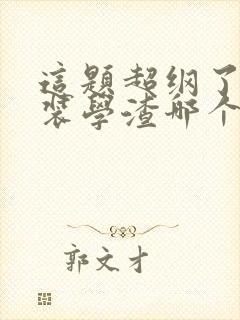 這題超纲了
裝學渣哪个
郭文才